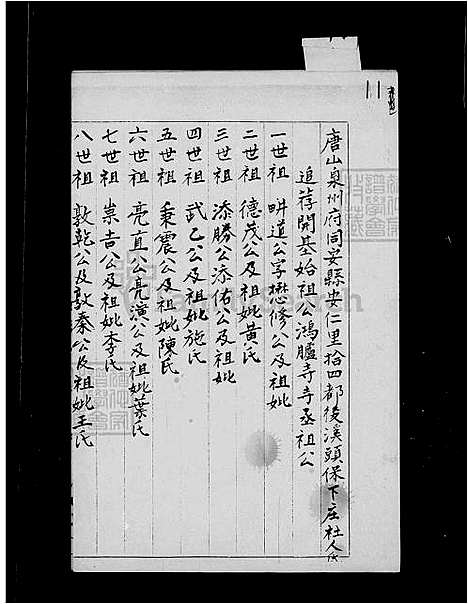 唐山泉州府同安縣安仁里拾四都後溪頭保下庄杜人氏
追荐開基始祖公鴻臚寺寺丞祖公
一世祖 畊道公字懋修公及祖妣
二世祖 德茂公及祖妣黃氏
三世祖 添勝公添佑公及祖妣
四世祖 武乙公及祖妣施氏
五世祖 秉震公及祖妣陳氏
六世祖 亮直公亮演公及祖妣葉氏
七世祖 崇吉公及祖妣李氏
八世祖 敦乾公及敦秦公及祖妣王氏
11